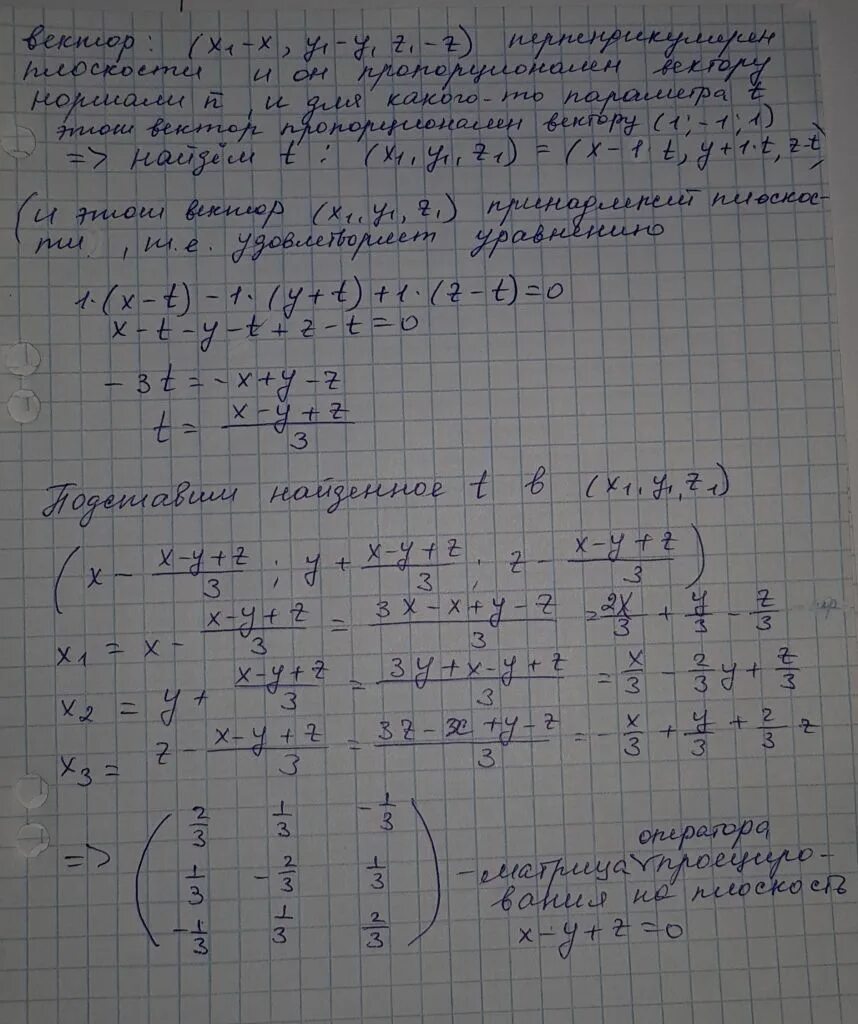 вектор: (x₁-x, y₁-y, z₁-z) перпендикулярен
плоскости и он пропорционален вектору
нормали n̄, и для какого-то параметра t
этот вектор пропорционален вектору (1; -1; 1)
=> найдём t : (x₁, y₁, z₁) = (x-1·t, y+1·t, z-t)
(и этот вектор (x₁, y₁, z₁) принадлежит плоскос-
ти, т.е. удовлетворяет уравнению
1·(x-t) - 1·(y+t) + 1·(z-t) = 0
x-t-y-t+z-t=0
-3t = -x+y-z
t = (x-y+z)/3
Подставим найденное t в (x₁, y₁, z₁)
(x - (x-y+z)/3 ; y + (x-y+z)/3 ; z - (x-y+z)/3)
x₁ = x - (x-y+z)/3 = (3x-x+y-z)/3 = 2x/3 + y/3 - z/3
x₂ = y + (x-y+z)/3 = (3y+x-y+z)/3 = x/3 - 2/3 y + z/3
x₃ = z - (x-y+z)/3 = (3z-x+y-z)/3 = -x/3 + y/3 + 2/3 z
=> ( 2/3 1/3 -1/3
1/3 -2/3 1/3
-1/3 1/3 2/3 )
оператора
- матрица ∨ проециро-
вания на плоскость
x-y+z=0